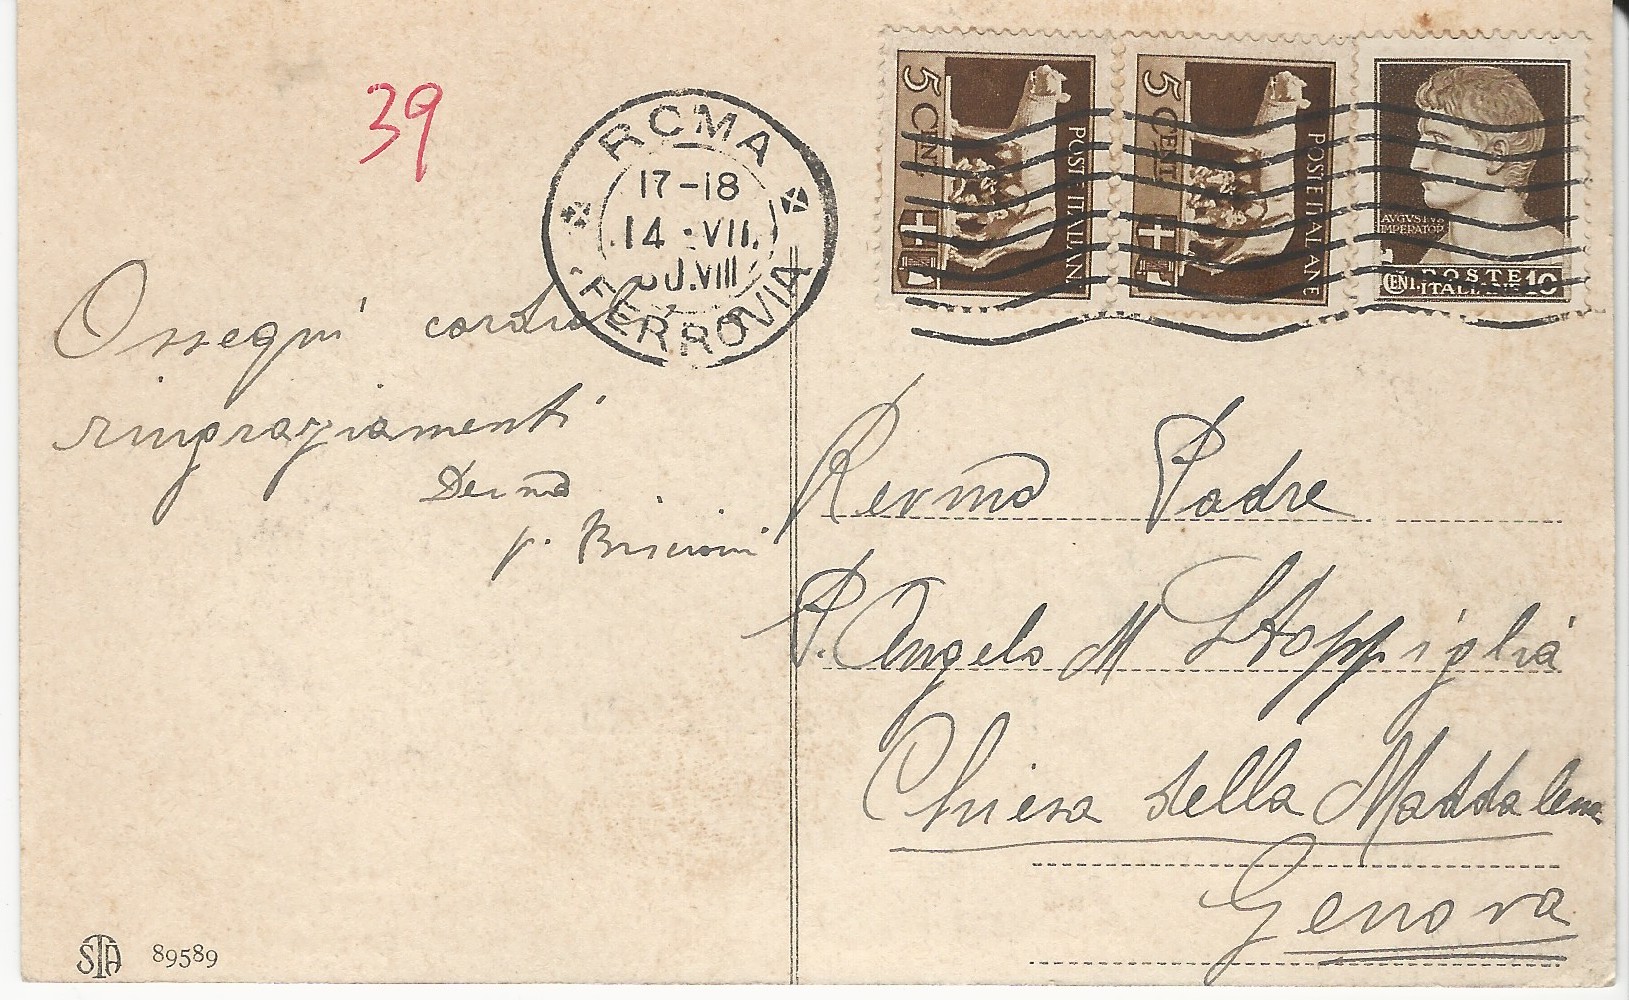 39
ROMA
17-18
14 · VII.
30.VIII
FERROVIA
5 CENT
POSTE ITALIANE
5 CENT
POSTE ITALIANE
AVGVSTVS
IMPERATOR
CENT. POSTE 10
ITALIANE
Ossequi cordiali
ringraziamenti
Dev.mo
p. Brisioni
Rev.mo Padre
P. Angelo M Stoppiglia
Chiesa della Maddalena
Genova
STA 89589